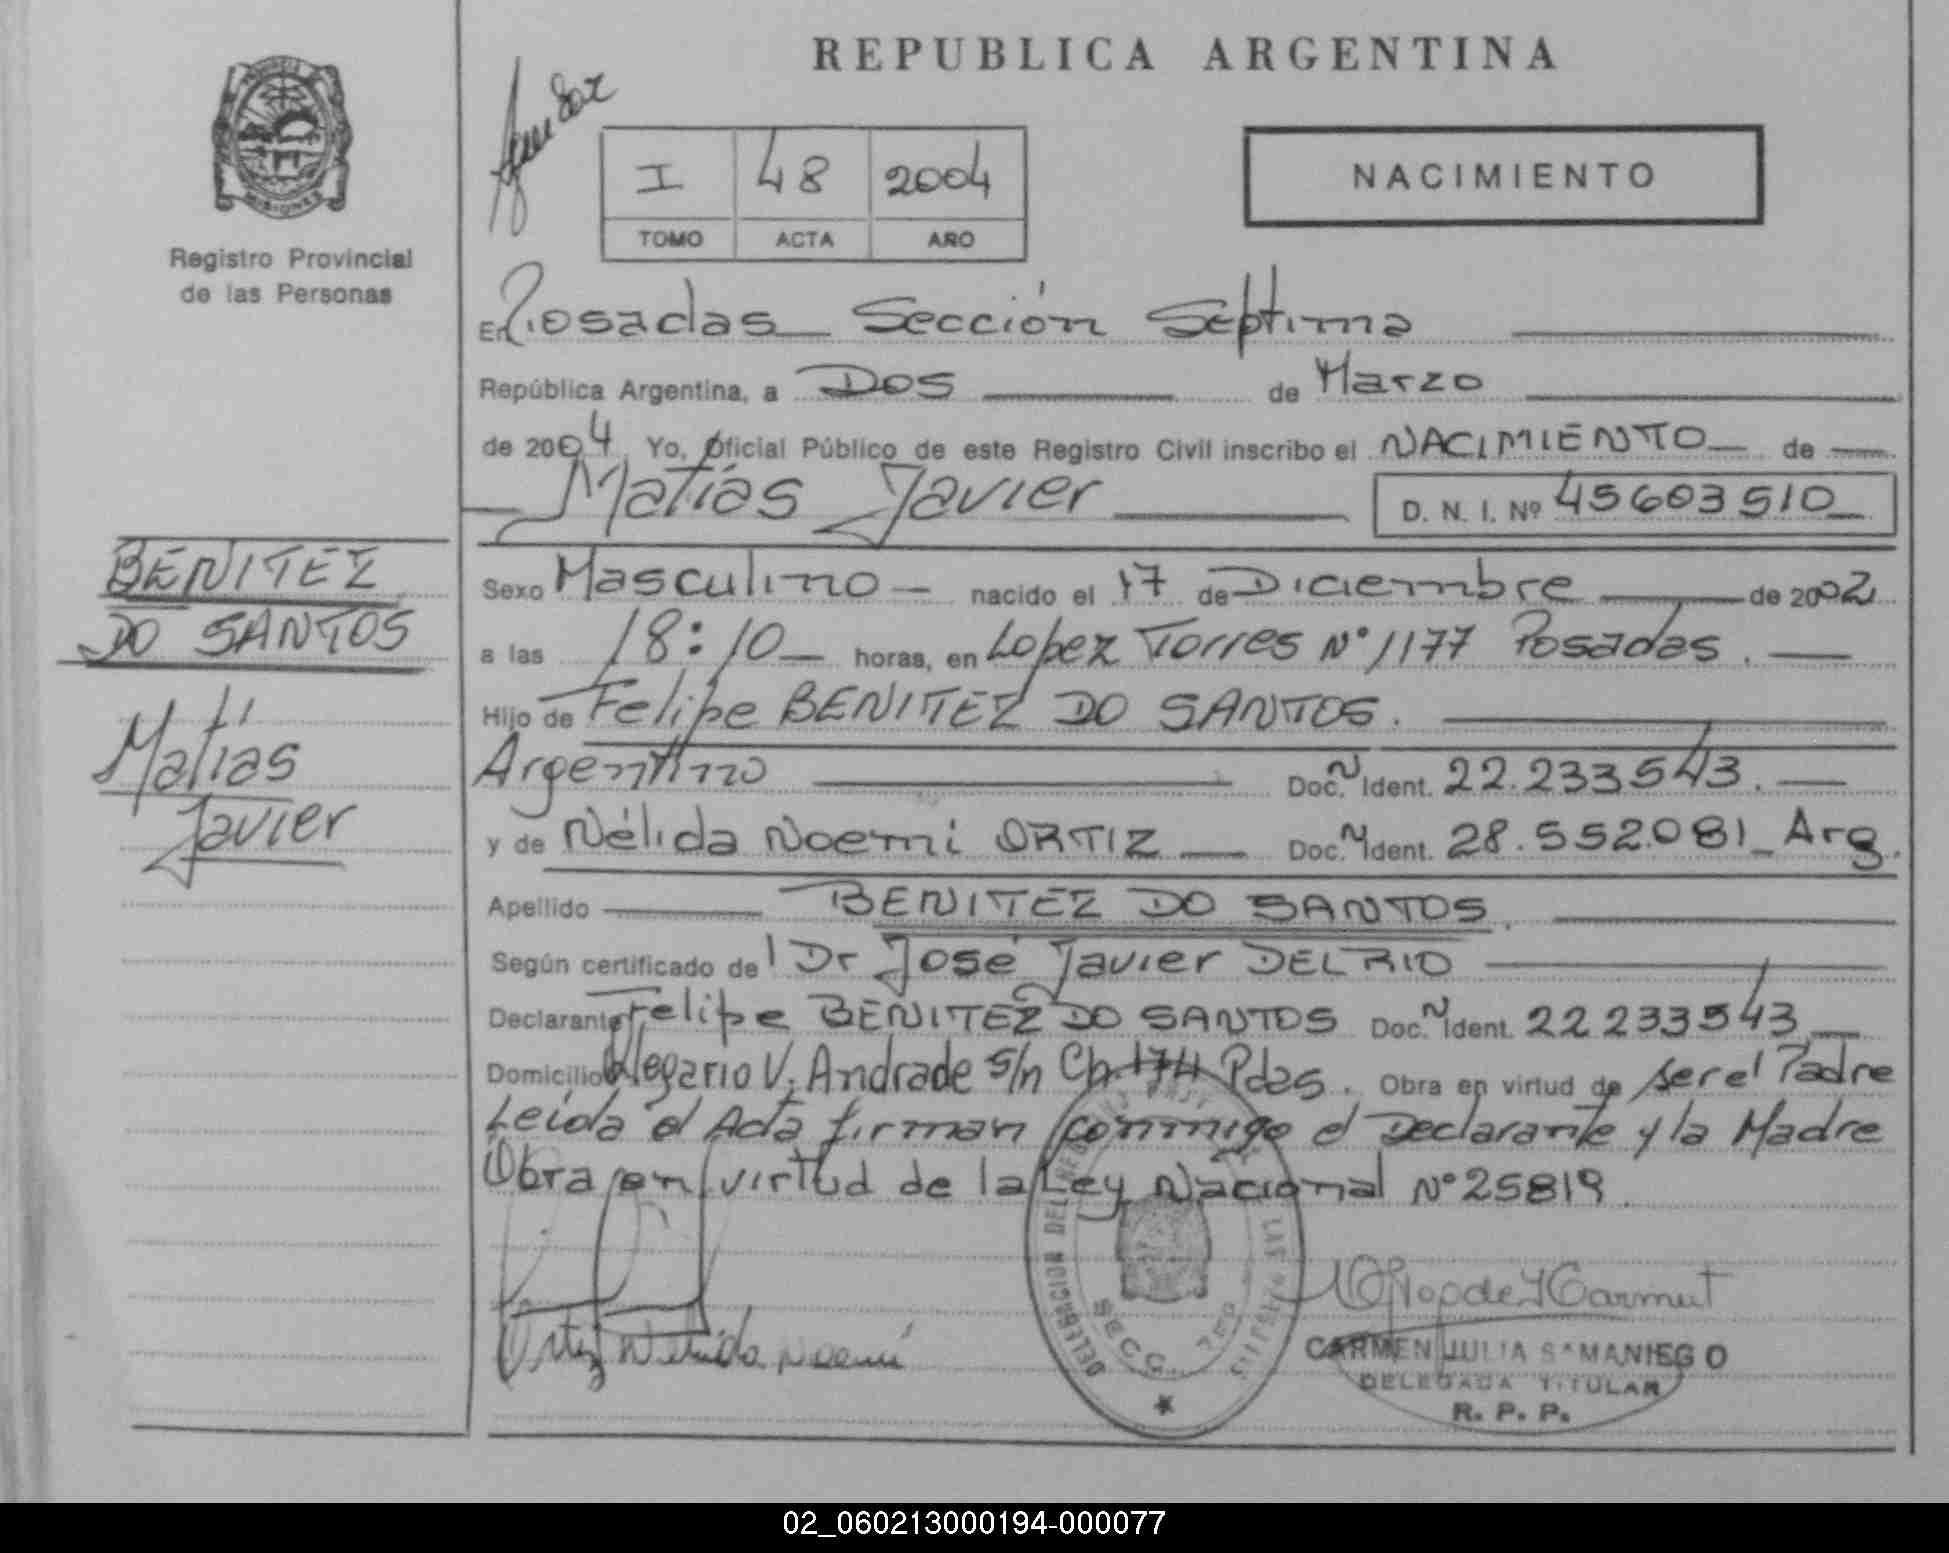 REPUBLICA ARGENTINA
MISIONES
Registro Provincial
de las Personas
I 48 2004
TOMO ACTA AÑO
NACIMIENTO
En Posadas Sección Séptima
República Argentina, a Dos de Marzo
de 2004 Yo, Oficial Público de este Registro Civil inscribo el NACIMIENTO de
Matías Javier D. N. I. Nº 45603510
BENITEZ
DO SANTOS
Matías
Javier
Sexo Masculino nacido el 17 de Diciembre de 2002
a las 18:10 horas, en Lopez Torres Nº 1177 Posadas.
Hijo de Felipe BENITEZ DO SANTOS.
Argentino Doc. Ident. 22.233543.
y de Nélida Noemi ORTIZ Doc. Ident. 28.552.081 Arg.
Apellido BENITEZ DO SANTOS.
Según certificado del Dr José Javier DEL RIO
Declarante Felipe BENITEZ DO SANTOS Doc. Ident. 22233543
Domicilio Olegario V. Andrade s/n Ch 174 Pdas. Obra en virtud de ser el Padre
Leída el Acta firman conmigo el Declarante y la Madre
Obra en virtud de la Ley Nacional Nº 25819.
Ortiz Nelida Noemí
DELEGACION DEL
SECC. 7
CARMEN JULIA SAMANIEGO
DELEGADA TITULAR
R. P. P.
02_060213000194-000077